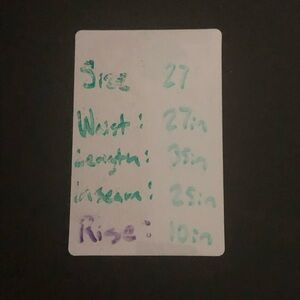 Size 27
Waist: 27in
Length: 35in
inseam: 25in
Rise: 10in